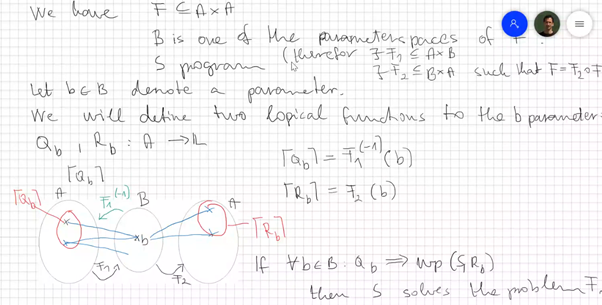 We have F ⊆ A×A
B is one of the parameterspaces of F.
S program (therefor ∃ F₁ ⊆ A×B
∃ F₂ ⊆ B×A such that F=F₂∘F
Let b∈B denote a parameter.
We will define two logical functions to the b parameter:
Q_b , R_b : A → 𝕃
⌈Q_b⌉ = F₁^(-1) (b)
⌈Q_b⌉
⌈R_b⌉ = F₂ (b)
⌈Q_b⌉ A F₁^(-1) B A
b
⌈R_b⌉
F₁ F₂
If ∀b∈B : Q_b ⟹ wp (S, R_b)
then S solves the problem F.